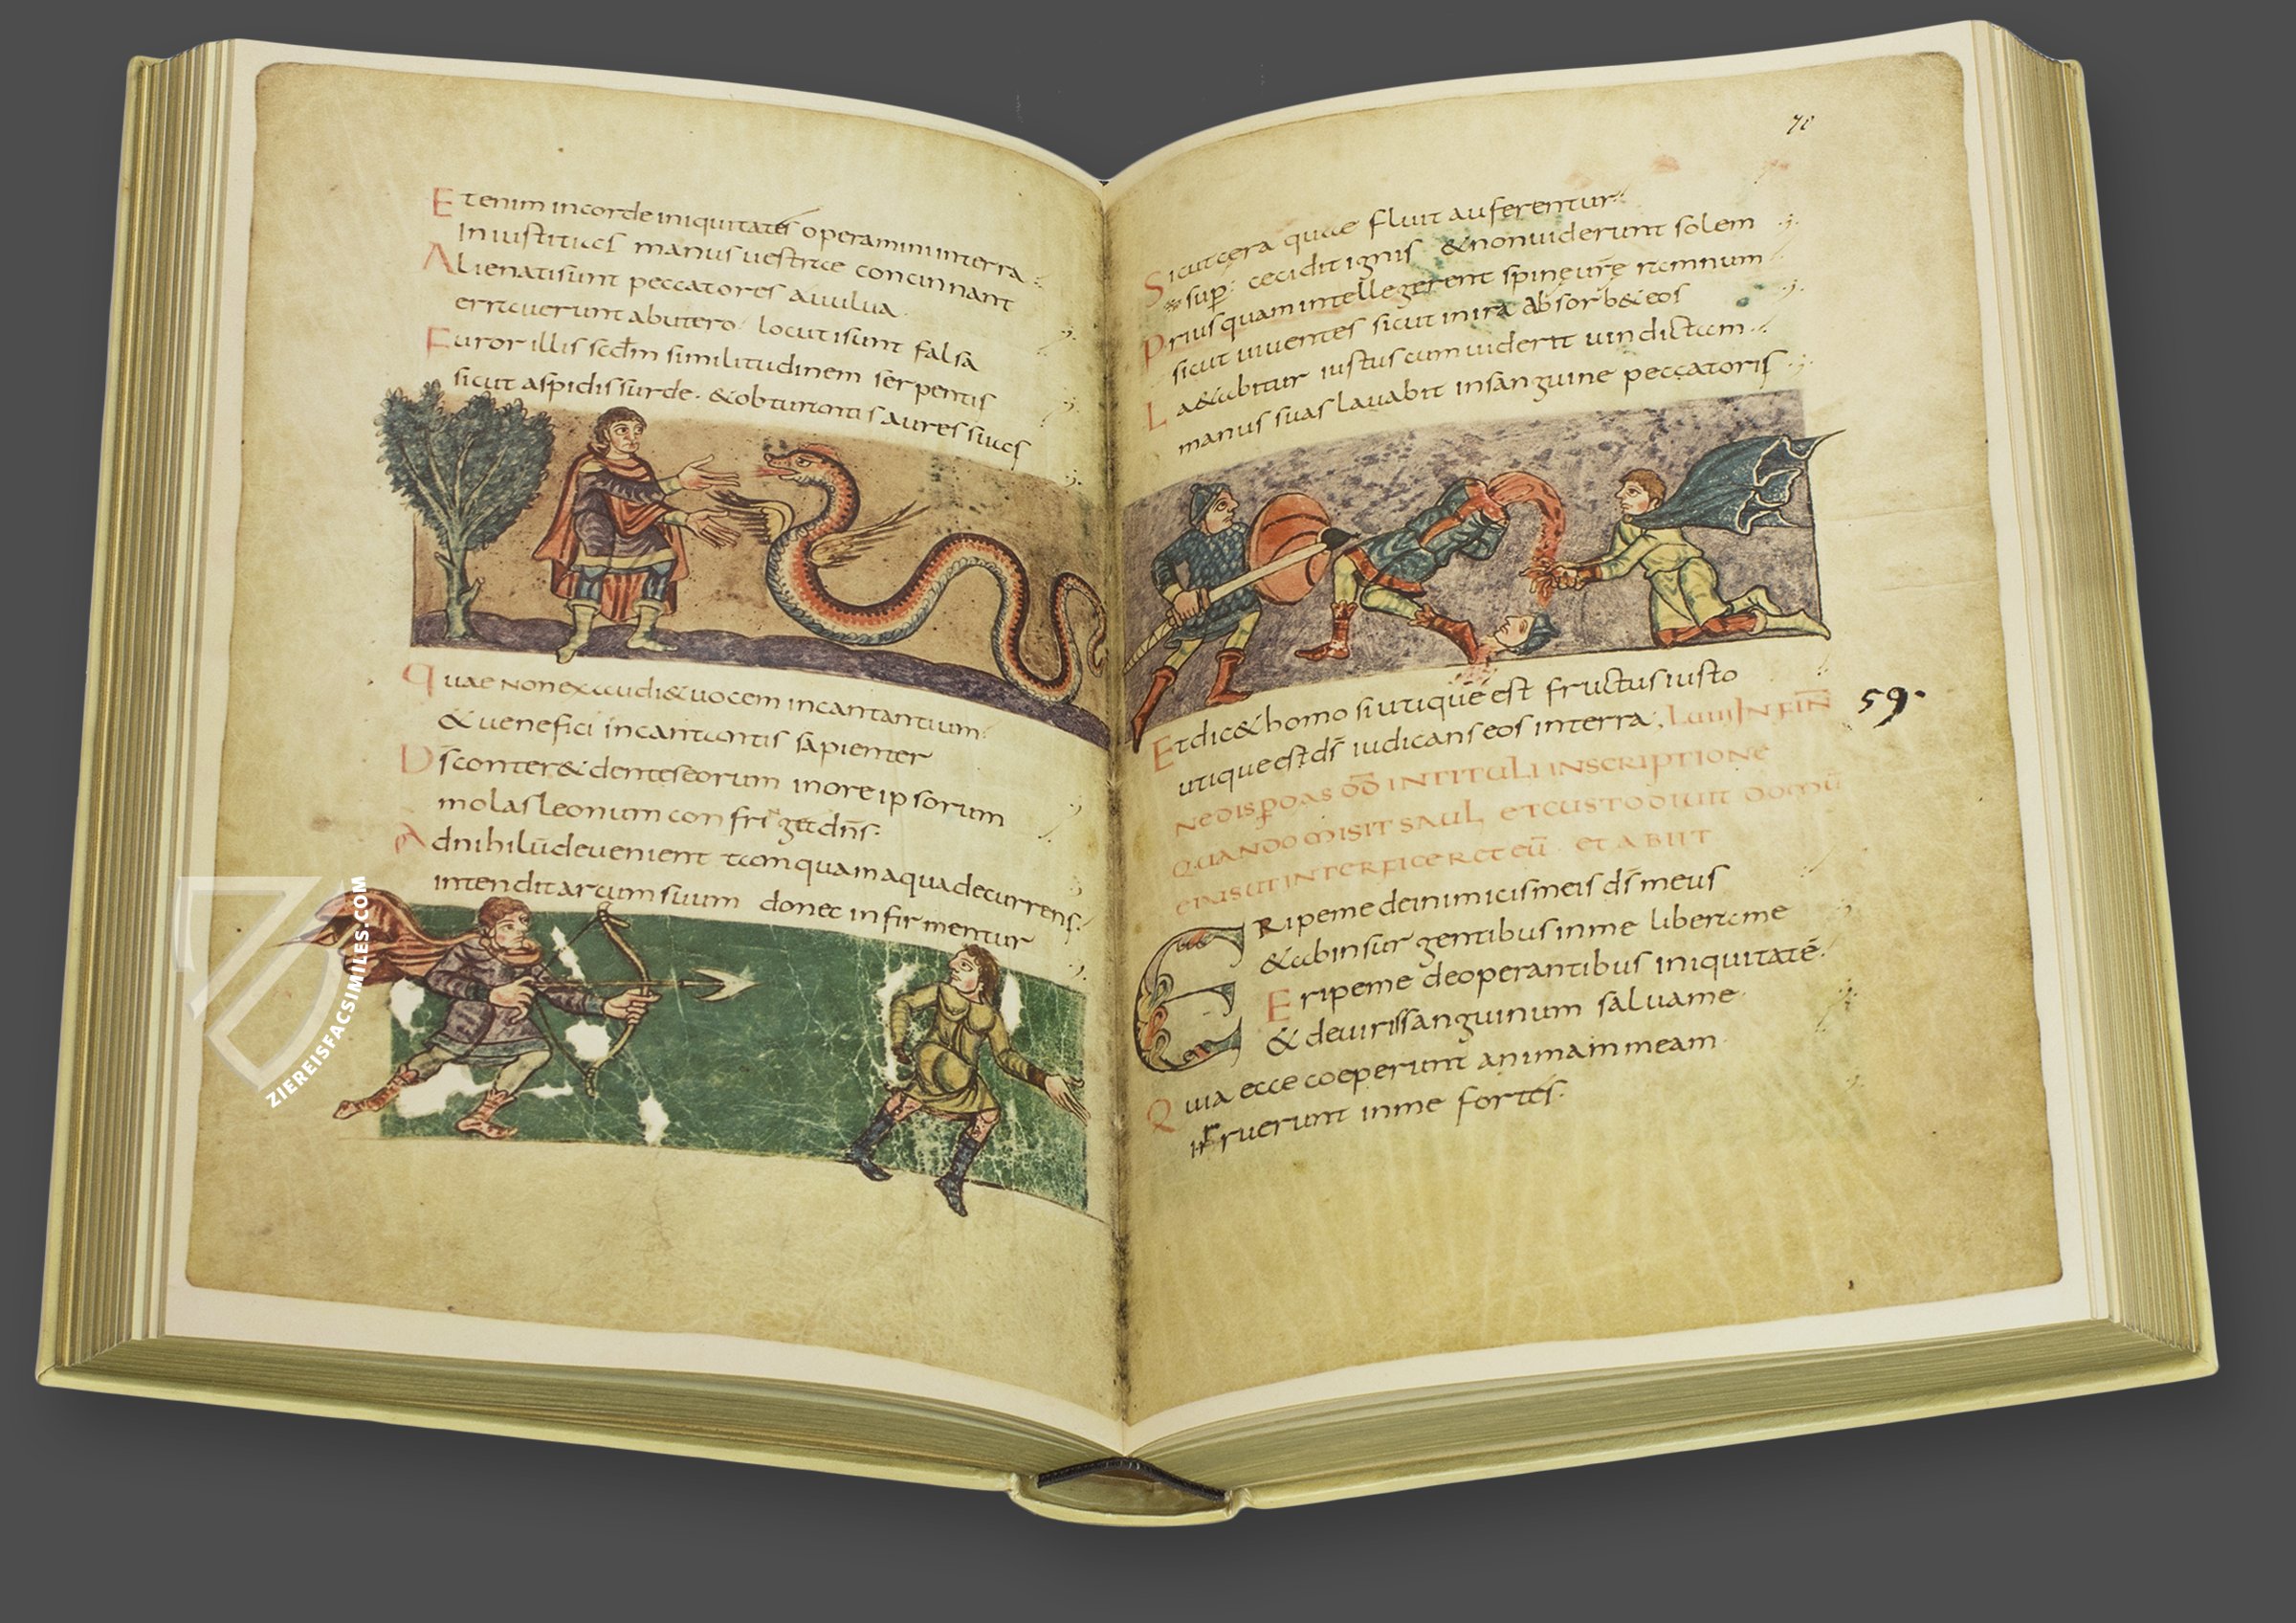 Etenim incorde iniquitates operamini interra
Iniustitias manus vestrae concinnant
Alienatisunt peccatores avulva
erraverunt abutero locutisunt falsa
Furor illis scdm similitudinem serpentis
sicut aspidis surde. & obturantis aures suas
Quae non exaudi& vocem incantantium
& venefici incantantis sapienter
Ds conter& dentes eorum inore ipsorum
molas leonum confringet dns.
Ad nihilū devenient tamquam aqua decurrens.
intendit arcum suum donec infirmentur
ZIEREISFACSIMILES.COM
71
Sicut cera quae fluit auferentur
sup: cecidit ignis & non viderunt solem
Priusquam intellegerent spine vrę ramnum
sicut viventes sicut inira absorb& eos
La&abitur iustus cum viderit vindictam
manus suas lavabit insanguine peccatoris
Et dic& homo si utique est fructus iusto
utique est ds iudicans eos interra. LVIII IN FIN
59.
NE DISPDAS DD IN TITULI INSCRIPTIONE
QUANDO MISIT SAUL ET CUSTODIVIT DOMŪ
EIUS UT INTERFICERET EŪ ET ABIIT
ERipe me deinimicis meis ds meus
& abinsurgentibus inme libera me
Eripe me deoperantibus iniquitatē
& deviris sanguinum salva me
Quia ecce coeperunt animam meam
irruerunt inme fortes.